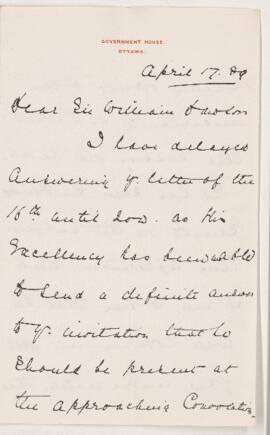 GOVERNMENT HOUSE.
OTTAWA.
April 17. 89
Dear Sir William Dawson
I have delayed
answering yr. letter of the
16th until now. as His
Excellency has been unable
to send a definite answer
to yr. invitation that he
should be present at
the approaching Convocation.